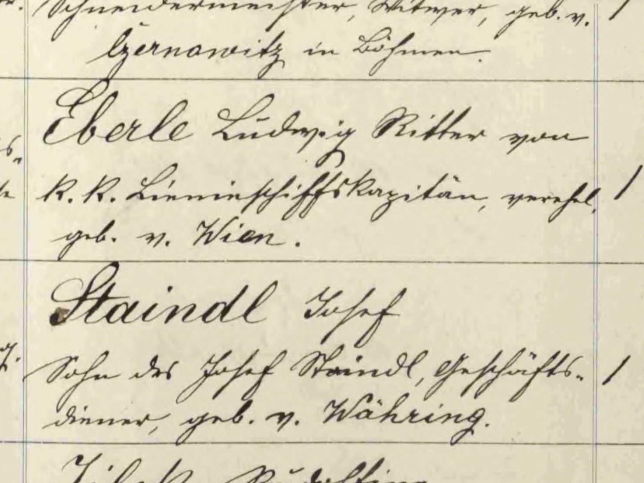 Schneidermeister, Witwer, geb. v. 1
Czernowitz in Böhmen.
Eberle Ludwig Ritter von
k. k. Linienschiffskapitän, verehel. 1
geb. v. Wien.
Staindl Josef
Sohn des Josef Staindl, Geschäfts- 1
diener, geb. v. Währing.